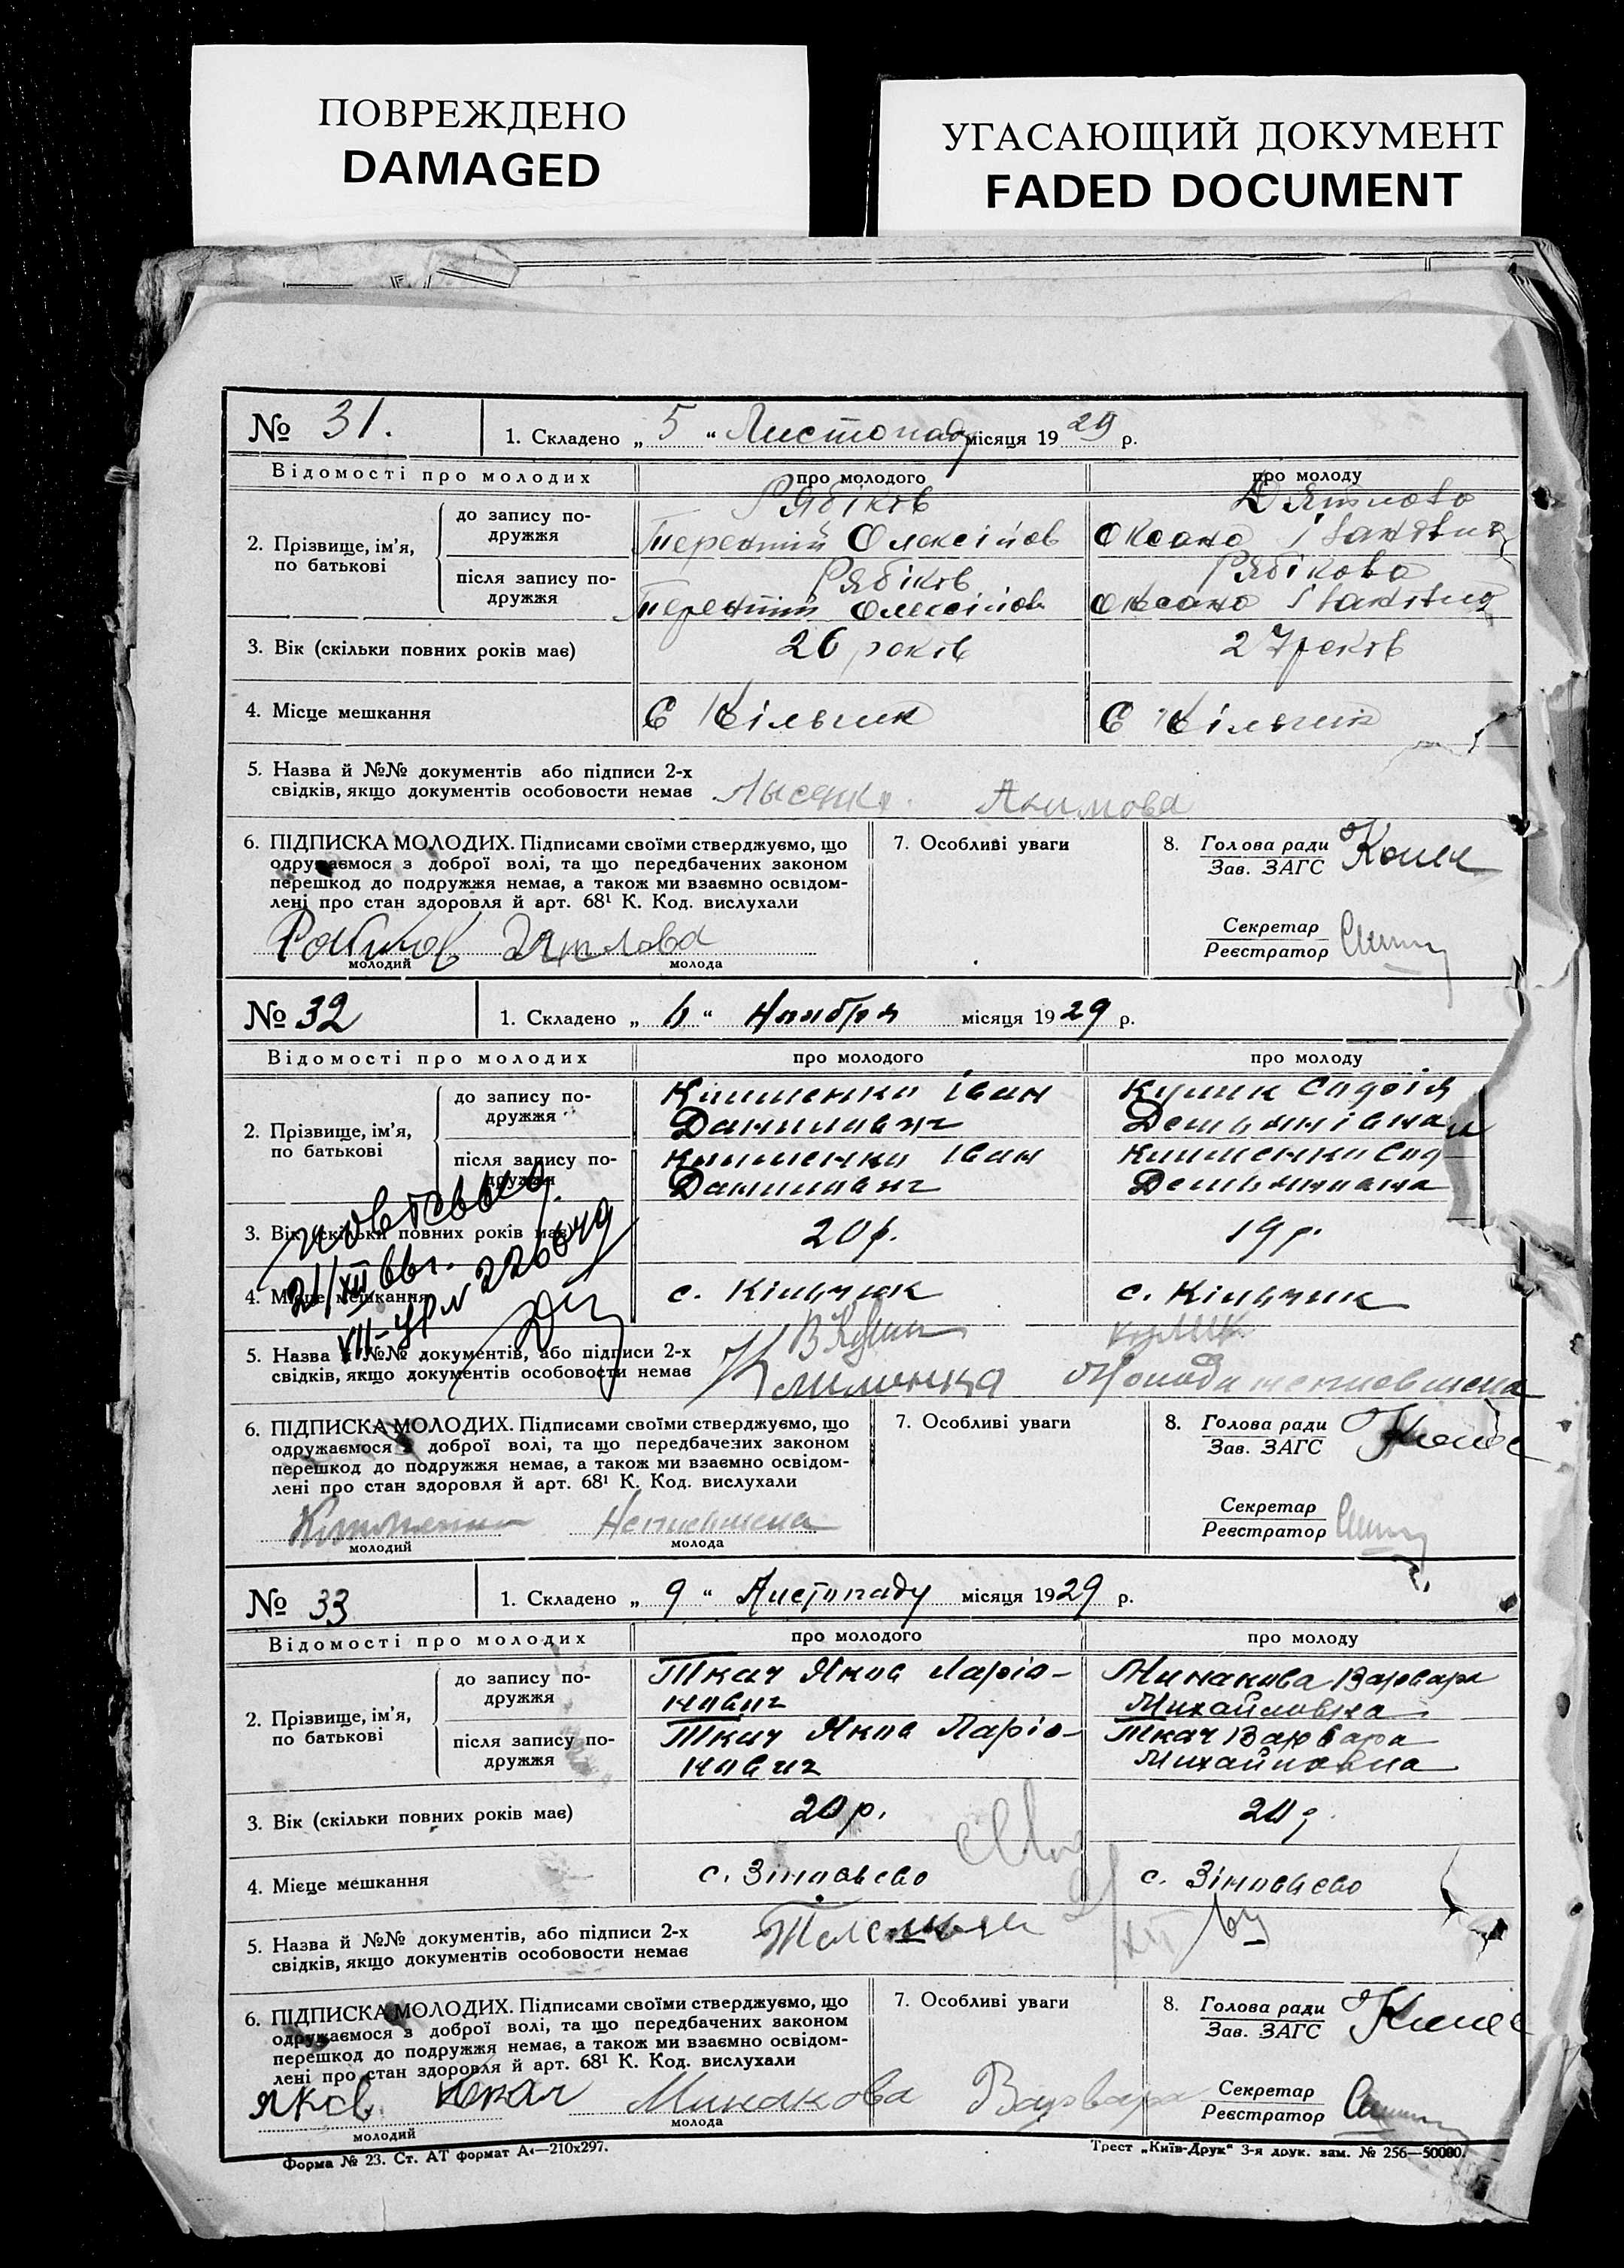 ПОВРЕЖДЕНО
DAMAGED
УГАСАЮЩИЙ ДОКУМЕНТ
FADED DOCUMENT
№ 31. 1. Складено „ 5 “ Листопаду місяця 19 29 р.
Відомості про молодих про молодого про молоду
2. Прізвище, ім’я, по батькові
до запису по-
дружжя
Рябіков
Терентий Олексійов
Дятлова
Оксана Іванівна
після запису по-
дружжя
Рябіков
Терентий Олексійов
Рябікова
Оксана Іванівна
3. Вік (скільки повних років має) 26 років 27 років
4. Місце мешкання С Кільчик С Кільчик
5. Назва й №№ документів або підписи 2-х
свідків, якщо документів особовости немає Акимова
6. ПІДПИСКА МОЛОДИХ. Підписами своїми стверджуємо, що
одружаємося з доброї волі, та що передбачених законом
перешкод до подружжя немає, а також ми взаємно освідом-
лені про стан здоров’я й арт. 68¹ К. Код. вислухали
Дятлова
молодий молода
7. Особливі уваги
8. Голова ради
Зав. ЗАГС
Секретар
Реєстратор
№ 32 1. Складено „ 6 “ Ноября місяця 19 29 р.
Відомості про молодих про молодого про молоду
2. Прізвище, ім’я,
по батькові
до запису по-
дружжя
Клименко Іван
Данилович
Кулик
Демьянівна
після запису по-
дружжя
Клименко Іван
Данилович
Клименко
Демьяновна
3. Вік (скільки повних років має) 20 р. 19 р.
21/XII 66 г.
4. Місце мешкання с. Кільчик с. Кільчик
5. Назва й №№ документів, або підписи 2-х
свідків, якщо документів особовости немає
Кулик
6. ПІДПИСКА МОЛОДИХ. Підписами своїми стверджуємо, що
одружаємося з доброї волі, та що передбачених законом
перешкод до подружжя немає, а також ми взаємно освідом-
лені про стан здоровля й арт. 68¹ К. Код. вислухали
Клименко
молодий молода
7. Особливі уваги
8. Голова ради
Зав. ЗАГС
Секретар
Реєстратор
№ 33 1. Складено „ 9 “ Листопаду місяця 19 29 р.
Відомості про молодих про молодого про молоду
2. Прізвище, ім’я,
по батькові
до запису по-
дружжя
Ткач Яков Ларіо-
нович
Минакова Варвара
Михайловна
після запису по-
дружжя
Ткач Яков Ларіо-
нович
Ткач Варвара
Михайловна
3. Вік (скільки повних років має) 20 р. 20 р.
4. Місце мешкання с. Зіновьєво с. Зіновьєво
5. Назва й №№ документів, або підписи 2-х
свідків, якщо документів особовости немає
6. ПІДПИСКА МОЛОДИХ. Підписами своїми стверджуємо, що
одружаємося з доброї волі, та що передбачених законом
перешкод до подружжя немає, а також ми взаємно освідом-
лені про стан здоровля й арт. 68¹ К. Код. вислухали
Яков Ткач Минакова Варвара
молодий молода
7. Особливі уваги
8. Голова ради
Зав. ЗАГС
Секретар
Реєстратор
Форма № 23. Ст. АТ формат А₄—210х297. Трест „Київ-Друк“ 3-я друк. зам. № 256—50000.